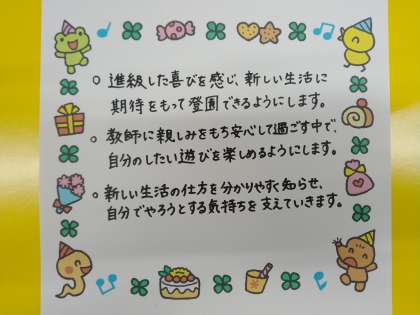 ○ 進級した喜びを感じ、新しい生活に
期待をもって登園できるようにします。
○ 教師に親しみをもち安心して過ごす中で、
自分のしたい遊びを楽しめるようにします。
○ 新しい生活の仕方を分かりやすく知らせ、
自分でやろうとする気持ちを支えていきます。